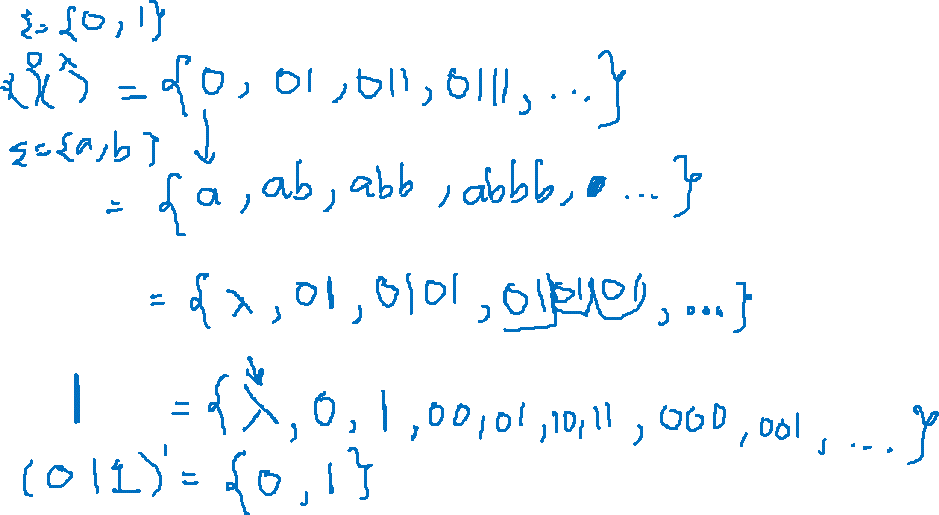 Σ={0,1}
= {0, 01, 011, 0111, ...}
Σ={a,b}
↓
= {a, ab, abb, abbb, ...}
= {λ, 01, 0101, 010101, ...}
| = {λ, 0, 1, 00, 01, 10, 11, 000, 001, ...}
(0|1)¹ = {0, 1}